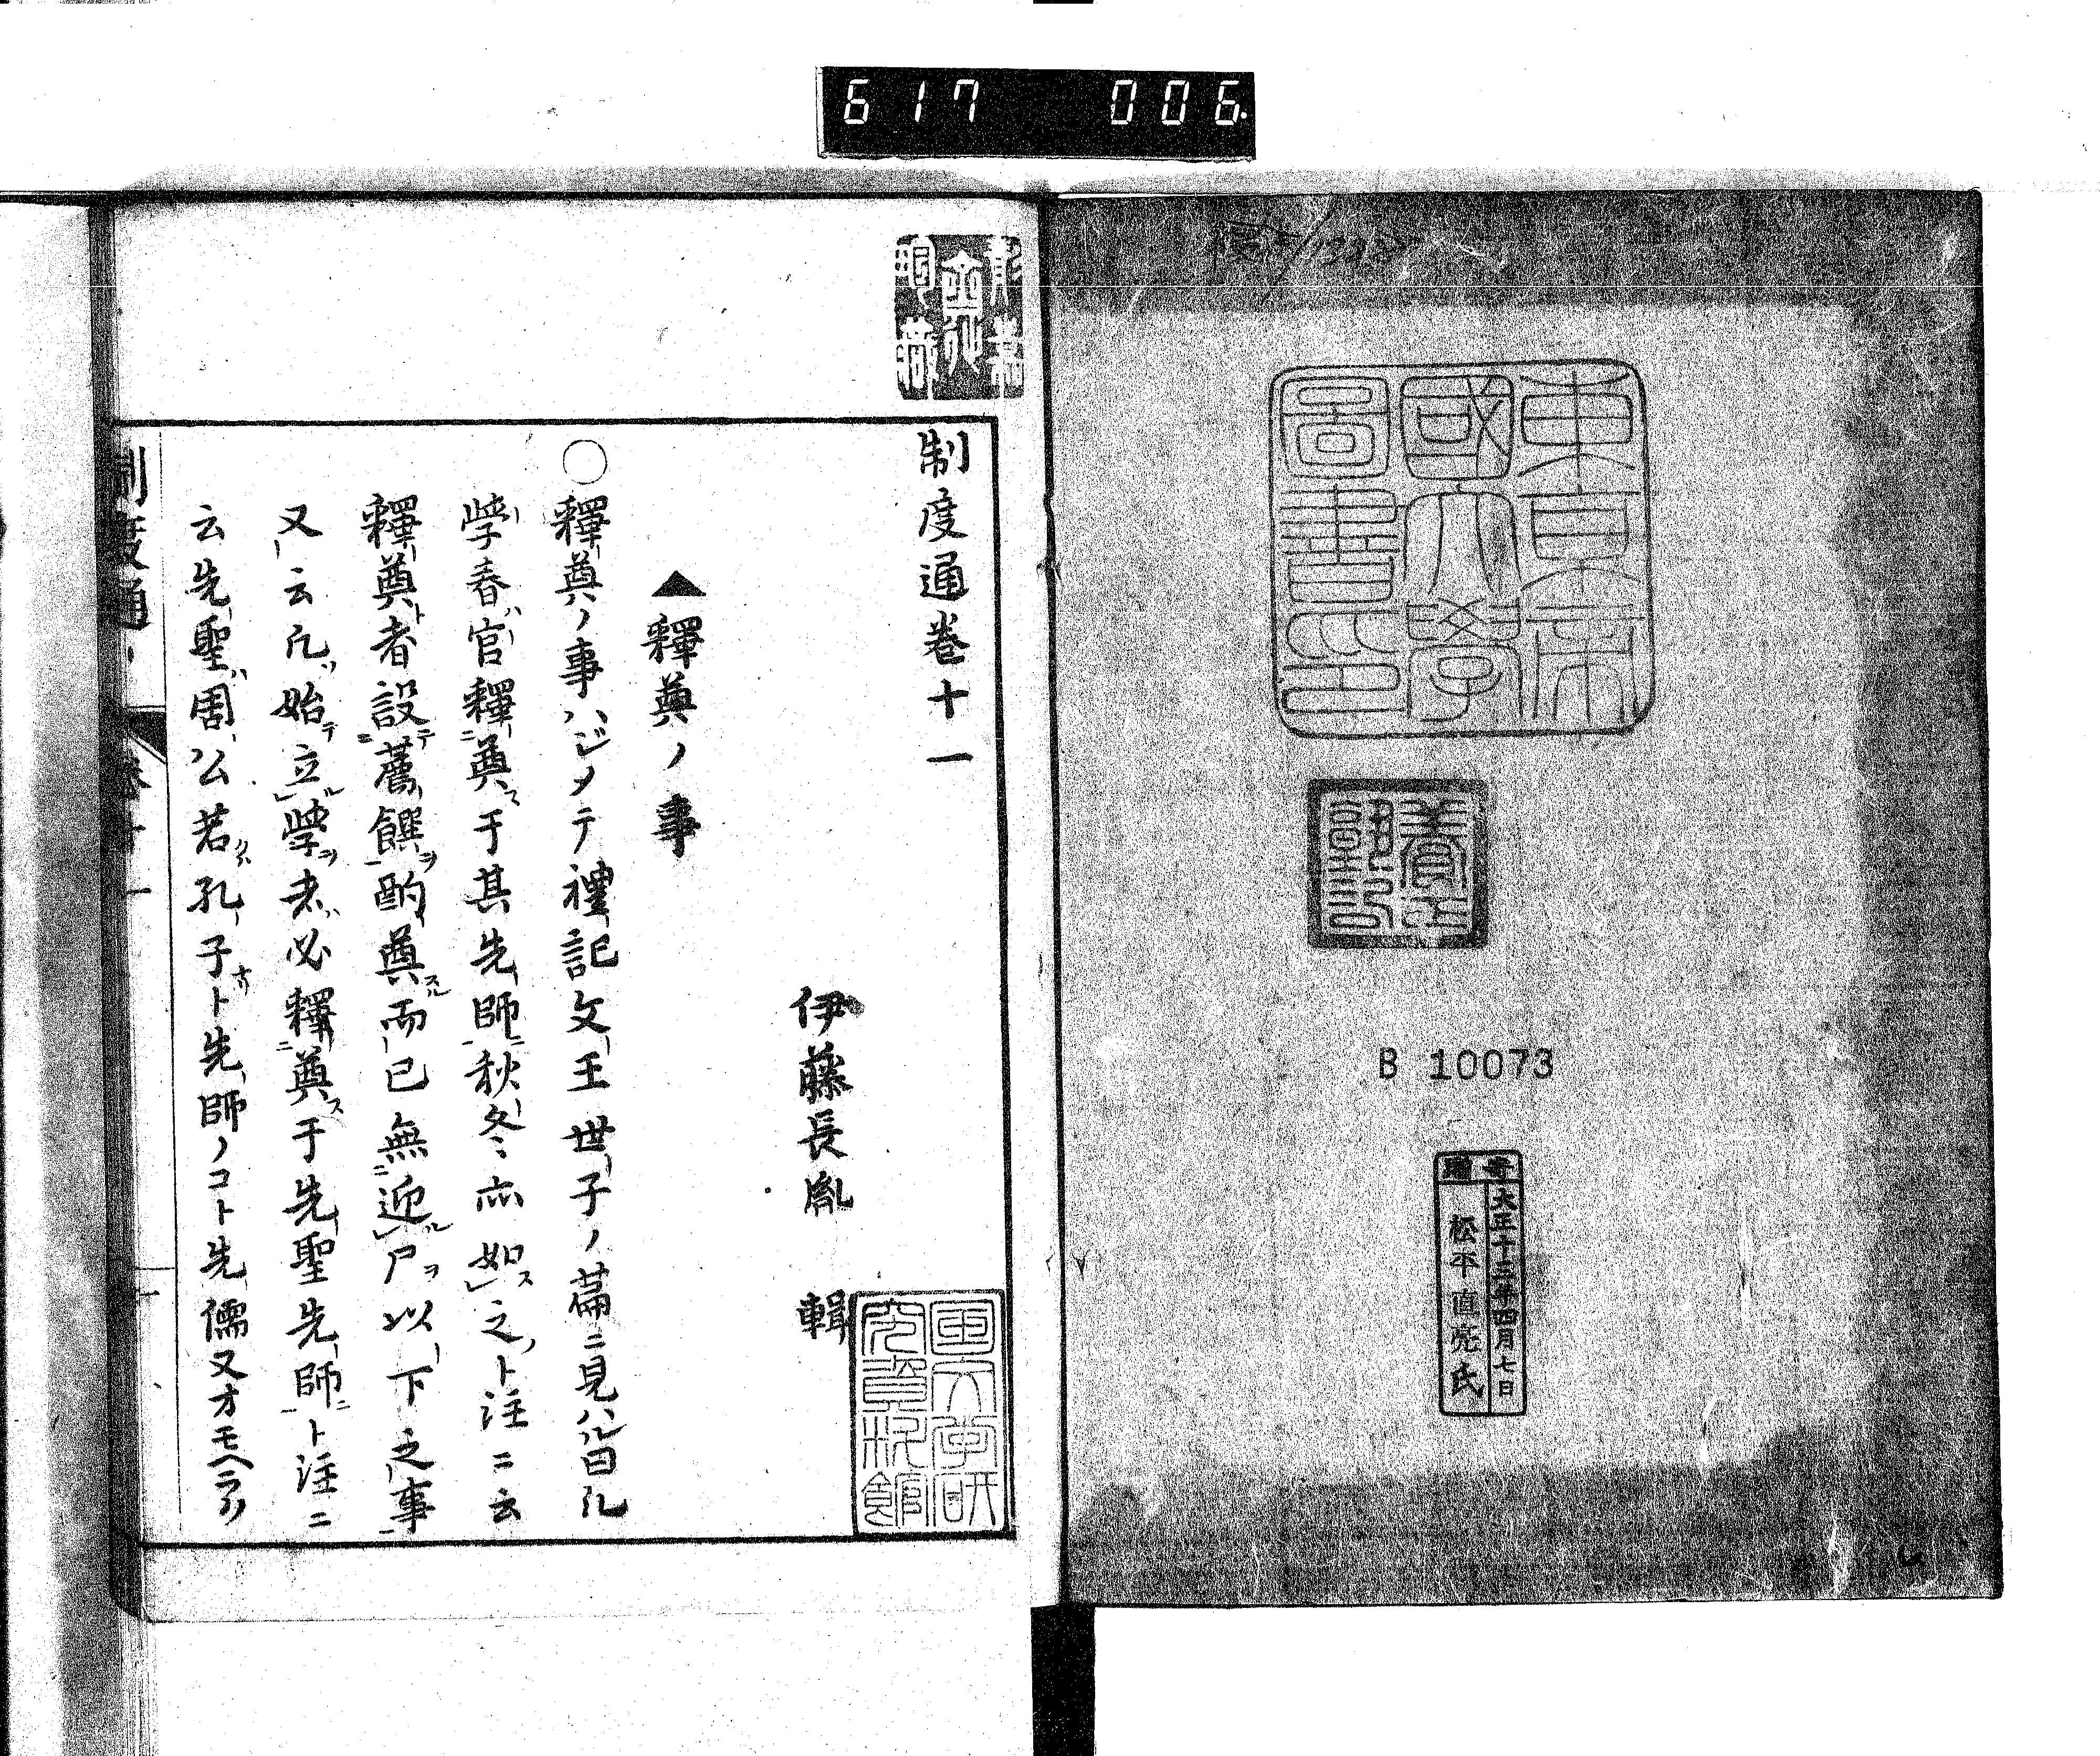 617 006
東京帝
國大學
圖書印
B 10073
寄贈
大正十三年四月七日
松平直亮氏
制度通巻十一
伊藤長胤 輯
國文学研
究資料館
▲釋奠ノ事
○釋奠ノ事ハジメテ禮記文王世子ノ篇ニ見ハル曰凡
學春官釋奠于其先師秋冬亦如之ト注ニ云
釋奠者設薦饌酌奠而已無迎尸以下之事
又云凡始立學者必釋奠于先聖先師ト注ニ
云先聖周公若孔子ト先師ノコト先儒又オモヘラク
制度通 巻十一 一